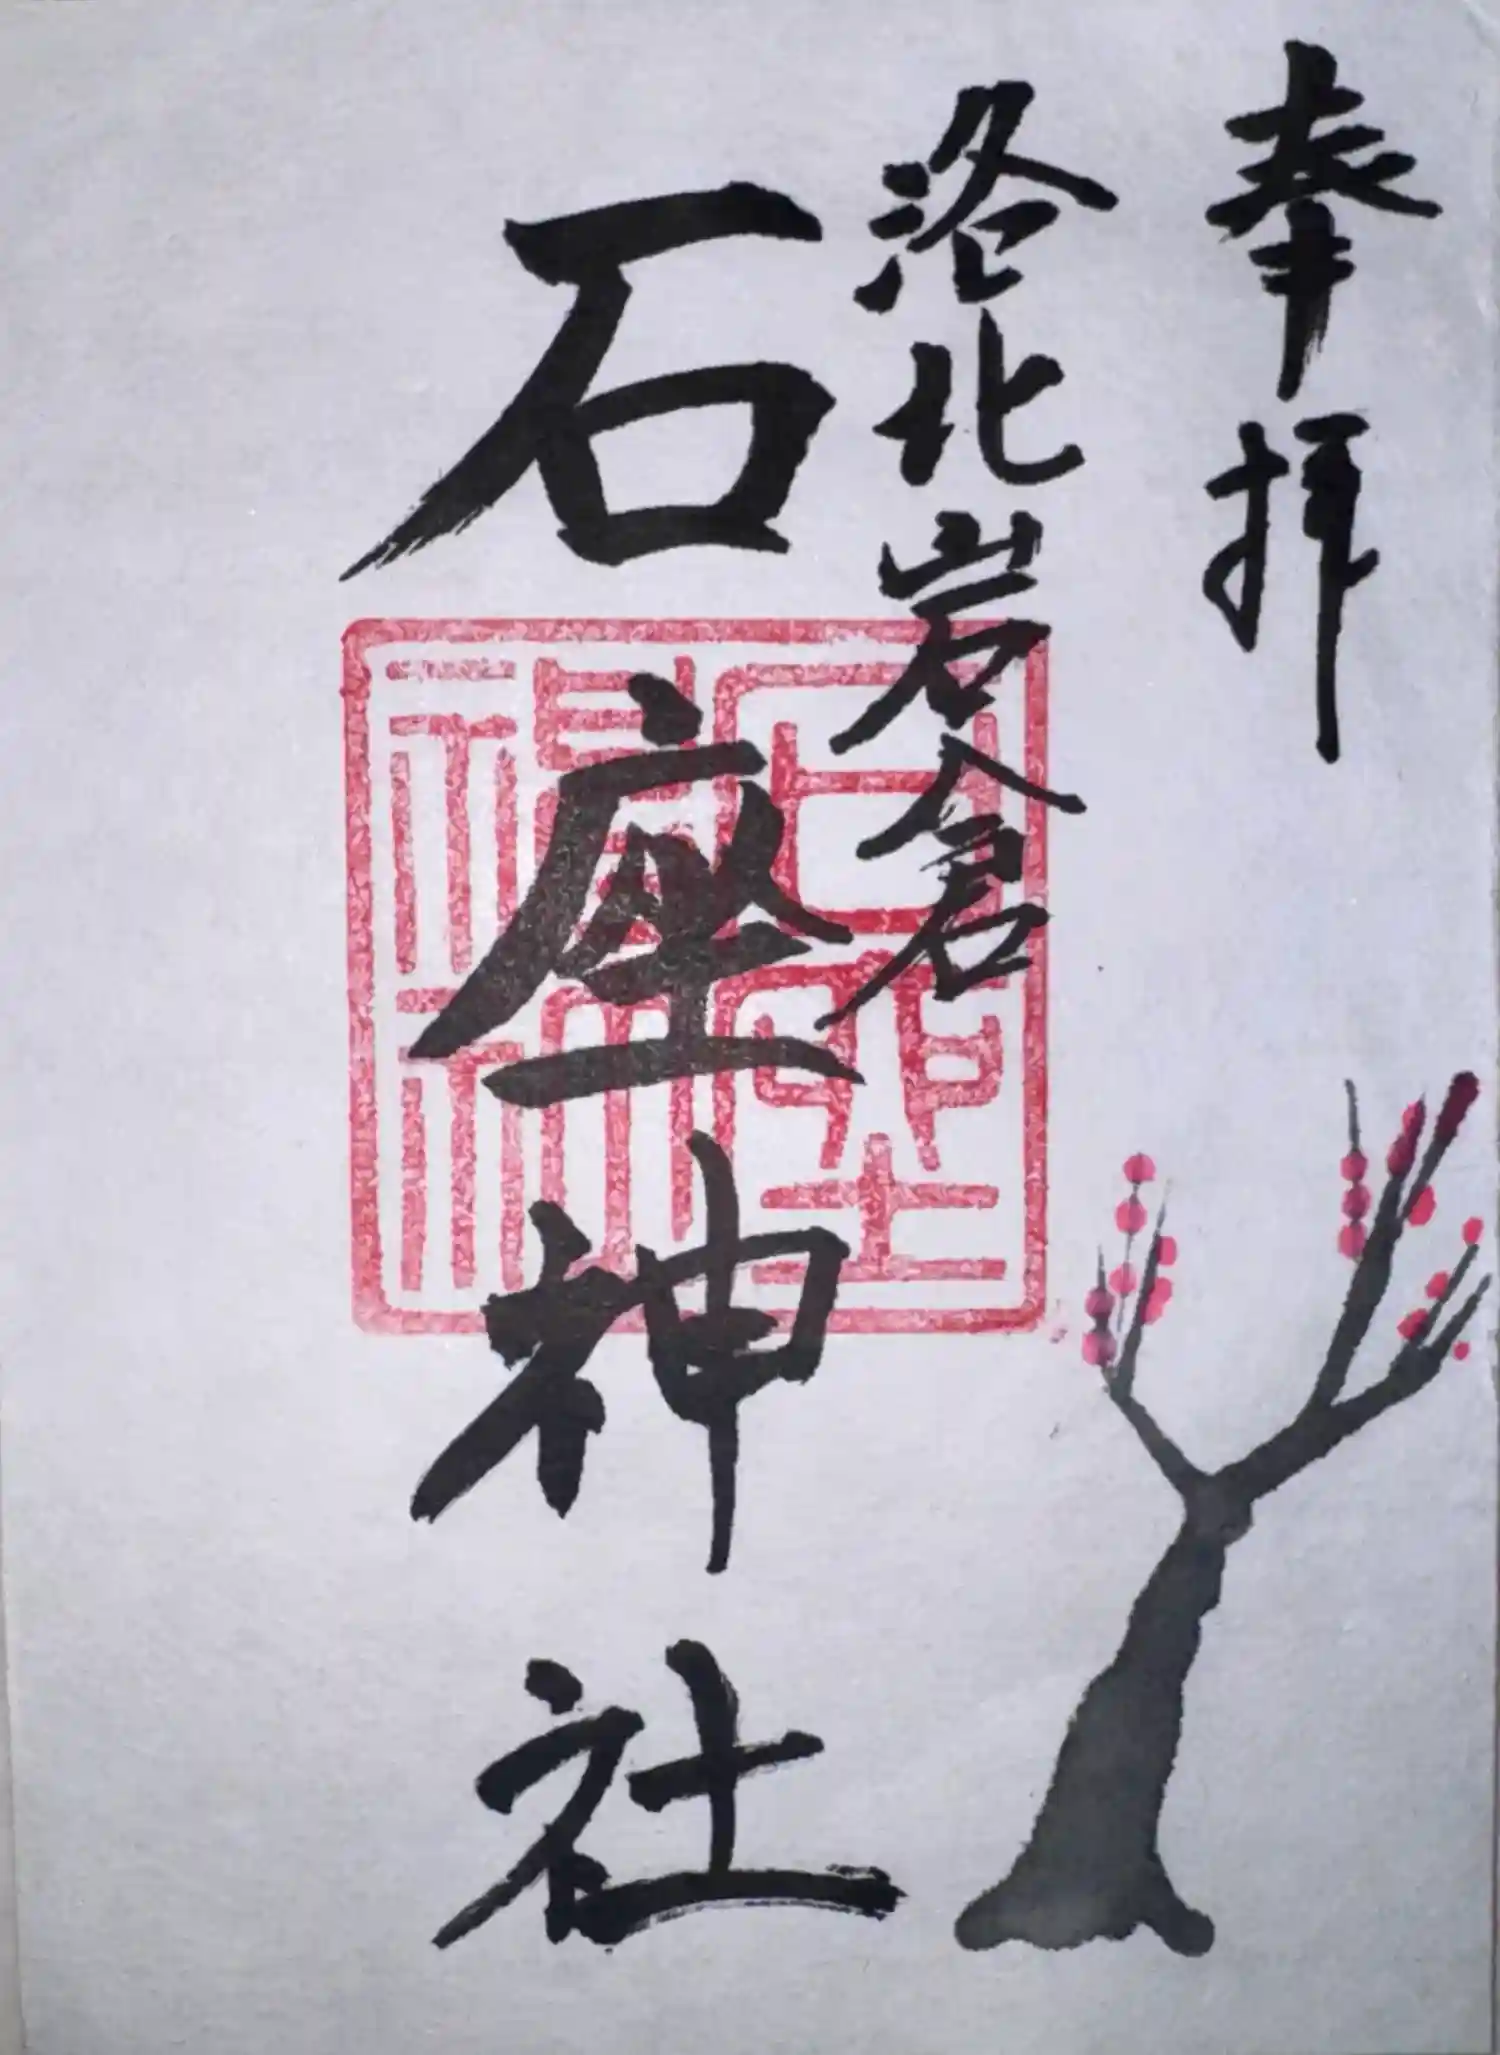 奉拝
洛北岩倉
石座神社
石座神社